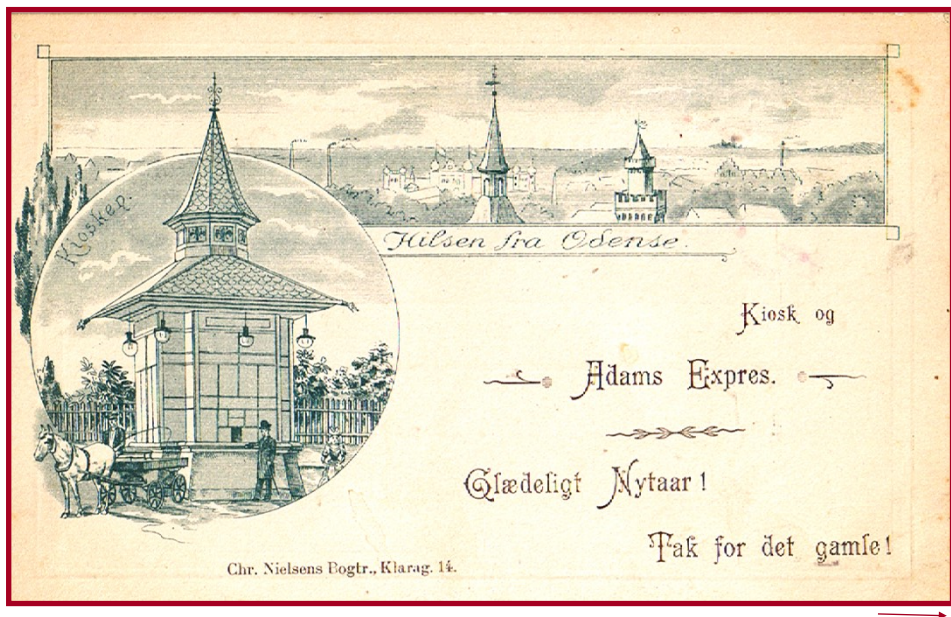 Kiosken.
Hilsen fra Odense.
Kiosk og
Adams Expres.
Glædeligt Nytaar!
Tak for det gamle!
Chr. Nielsens Bogtr., Klarag. 14.